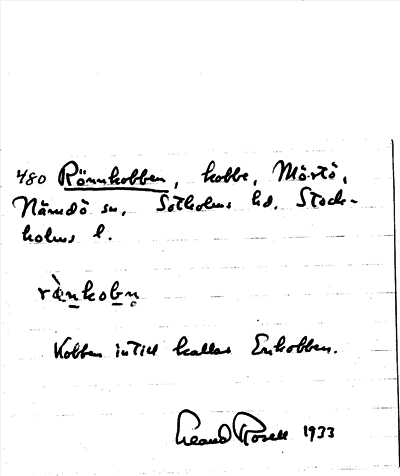 480 Rönnkobben, kobbe, Mörtö,
Nämdö sn, Sotholms hd, Stock-
holms l.
rə̀nkobn̥
Kobben intill kallas Enkobben.
Rosell 1933